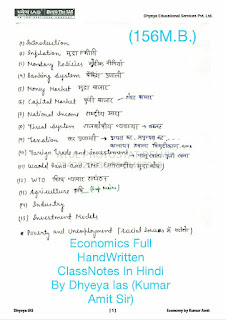 ध्येय IAS
Dhyeya IAS
Dhyeya Educational Services Pvt. Ltd.
(156M.B.)
(1) Introduction
(2) Inflation मुद्रा स्फीति
(3) Monetary Policies मौद्रिक नीतियां
(4) Banking System बैंकिंग प्रणाली
(5) Money Market मुद्रा बाजार
(6) Capital Market पूंजी बाजार
(7) National Income राष्ट्रीय आय
(8) Fiscal System राजकोषीय व्यवस्था
(9) Taxation कर प्रणाली
(10) Foreign Trade and Investment
(11) World Bank and IMF
(12) WTO विश्व व्यापार संगठन
(13) Agriculture कृषि
(14) Industry
(15) Investment Models
* Poverty and Unemployment
Economics Full
HandWritten
ClassNotes In Hindi
By Dhyeya Ias (Kumar
Amit Sir)
Dhyeya IAS
[1]
Economy by Kumar Amit